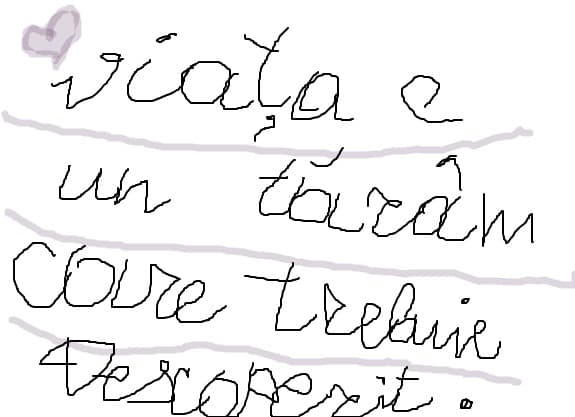 viața e
un tărâm
care trebuie
descoperit.